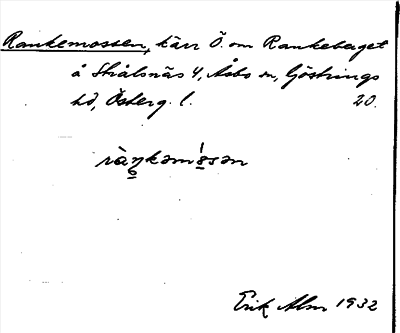 Rankemossen, kärr Ö. om Rankeberget
å Strålsnäs 4, Åsbo sn, Göstrings
hd, Österg. l. 20.
Erik Alm 1932